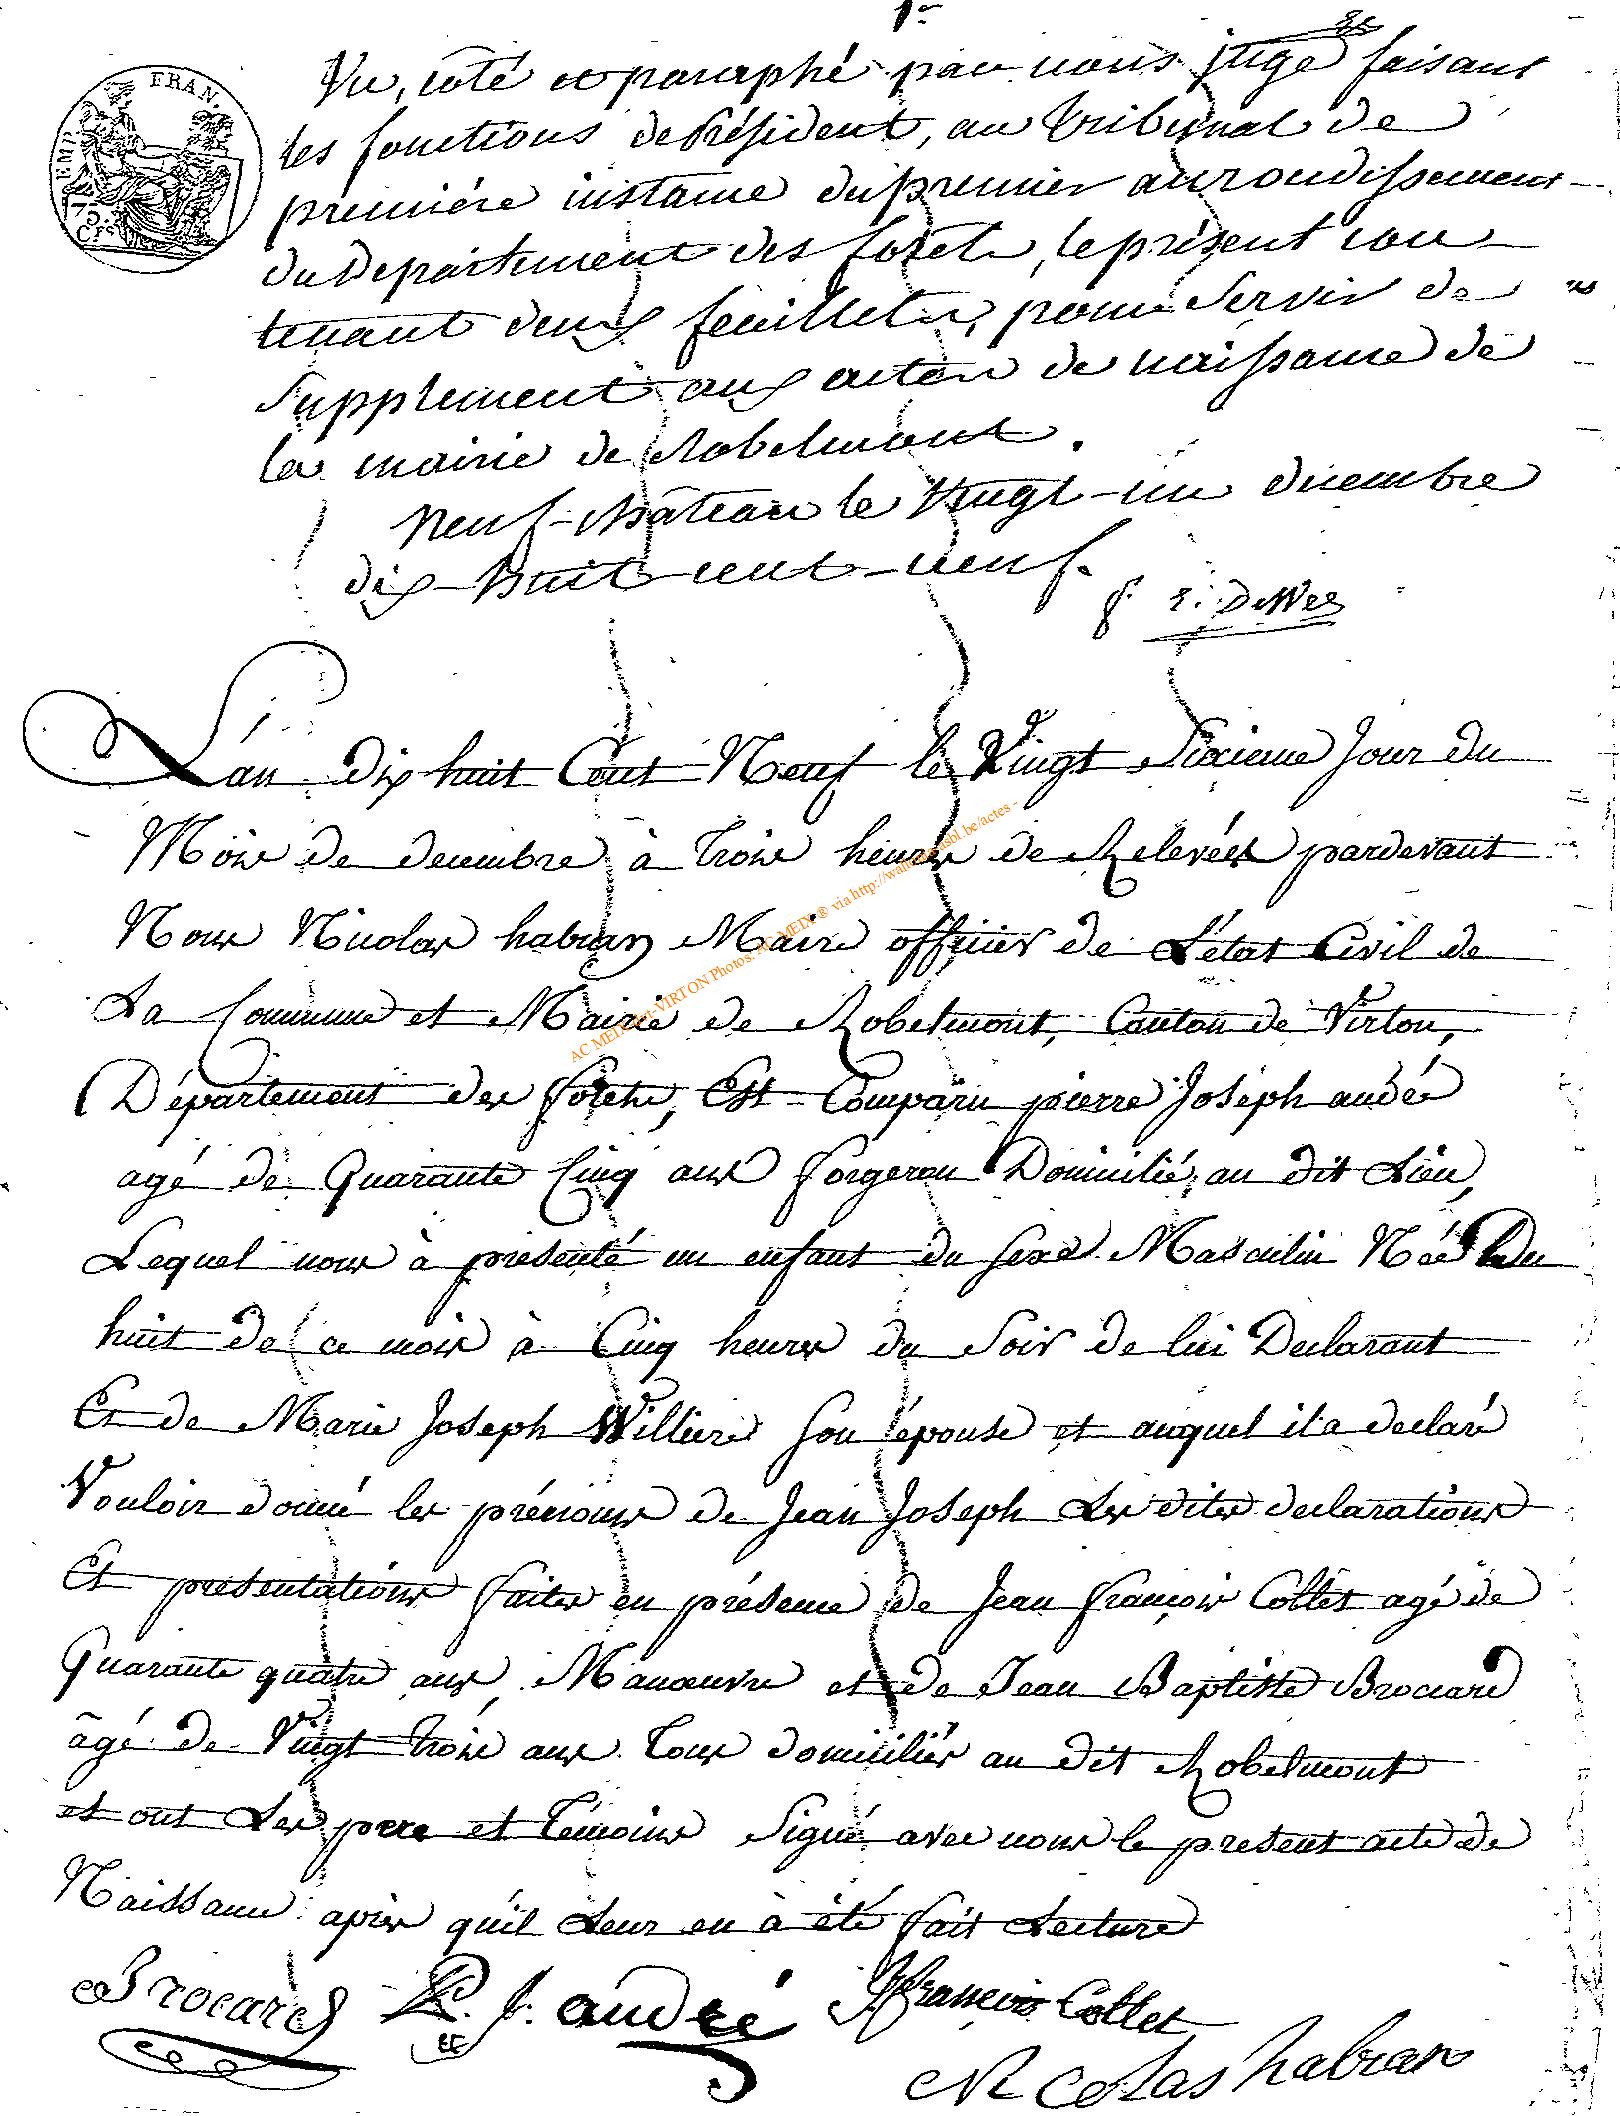 1er
EMP. FRAN.
75.
Cres
Vu, coté et paraphé par nous juge faisant
les fonctions de Président, au tribunal de
première instance du premier arrondissement
du Departement des forets, le présent con
tenant deux feuillets, pour servir de
supplement aux actes de naissance de
la mairie de Robelmont.
Neuf-château le vingt-un decembre
dix-huit-cent-neuf.
L'an dix huit Cent Neuf le Vingt Sixieme Jour du
Mois de decembre à trois heures de Relevées pardevant
Nous Nicolas habran Maire officier de L'état Civil de
La Commune et Mairie de Robelmont, Canton de Virton,
Département des forêts, Est Comparu pierre Joseph andré
agé de Quarante Cinq ans forgeron Domicilié au dit Lieu,
Lequel nous à presenté un enfant du sexe Masculin Né Du
huit de ce mois à Cinq heures du Soir de lui Declarant
Et de Marie Joseph Willieme son épouse et auquel il a declaré
Vouloir donné les prénoms de Jean Joseph Les dites declarations
Et presentations faites en présence de Jean françois Collet agé de
Quarante quatre ans, Manœuvre et de Jean Baptiste Brocard
âgé de Vingt trois ans Tous domiciliés au dit Robelmont
et ont Les pere et Témoins Signé avec nous le present acte de
Naissance après qu'il Leur en à été fait Lecture
Brocard P. J. andré Jfrancois Collet
Nicolas habran
AC MEIX-DT-VIRTON Photos: AC MEIX ® via http://wallonia-asbl.be/actes -